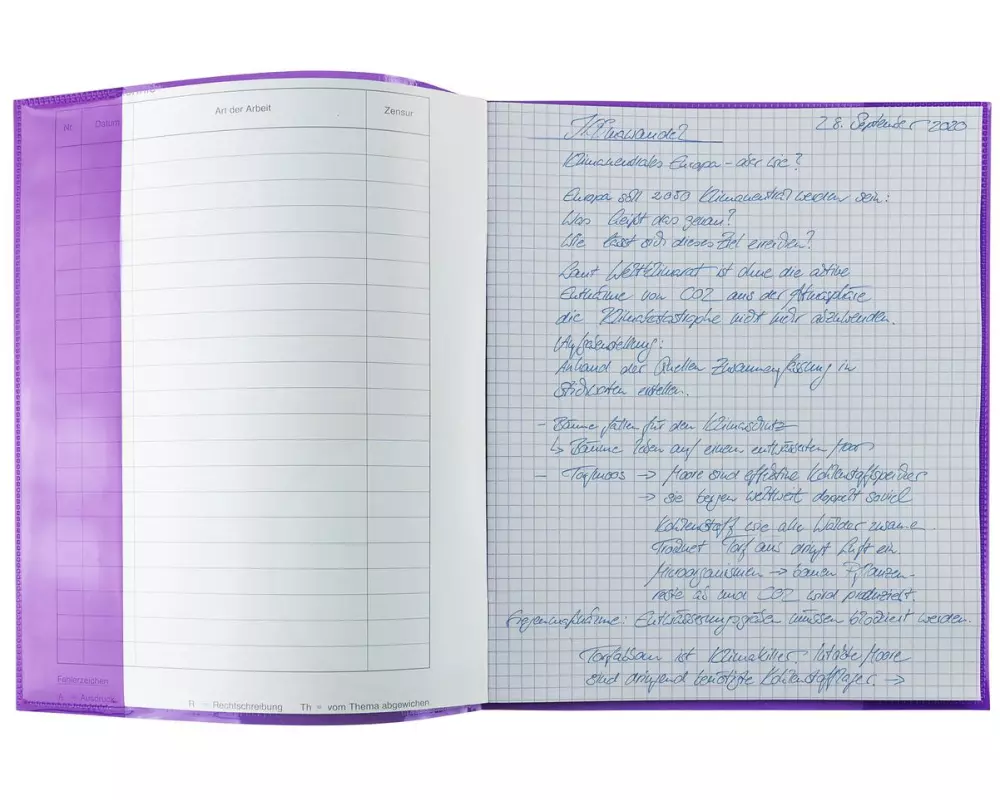 Nr.
Datum
An der Arbeit
Zensur
Fehlerzeichen
A = Ausdruck
R = Rechtschreibung
Th = vom Thema abgewichen.
Klimawandel
28. September 2020
Klimaneutrales Europa - aber wie?
Europa soll 2050 Klimaneutral werden sein:
Was heißt das genau?
Wie lässt sich dieses Ziel erreichen?
Laut Weltklimarat ist ohne die aktive
Entnahme von CO2 aus der Atmosphäre
die Klimakatastrophe nicht mehr abzuwenden.
Aufgabenstellung:
Anhand der Quellen Zusammenfassung in
Stichworten erstellen.
- Bäume fällen für den Klimaschutz
↳ Bäume leben auf einem entwässerten Moor
- Torfmoos → Moore sind effektive Kohlenstoffspeicher
→ sie bergen weltweit doppelt soviel
Kohlenstoff wie alle Wälder zusammen.
Trocknet Torf aus dringt Luft ein.
Microorganismen → bauen Pflanzen-
reste ab und CO2 wird produziert.
Entwässerungsgräben müssen blockiert werden.
Torfabbau ist Klimakiller. Intakte Moore
sind dringend benötigte Kohlenstofflager. →